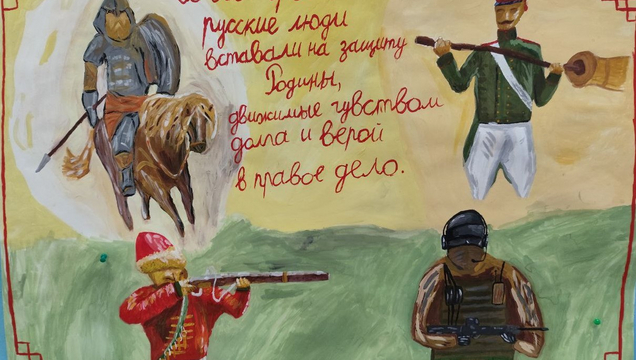 русские люди
вставали на защиту
Родины,
движимые чувством
долга и верой
в правое дело.